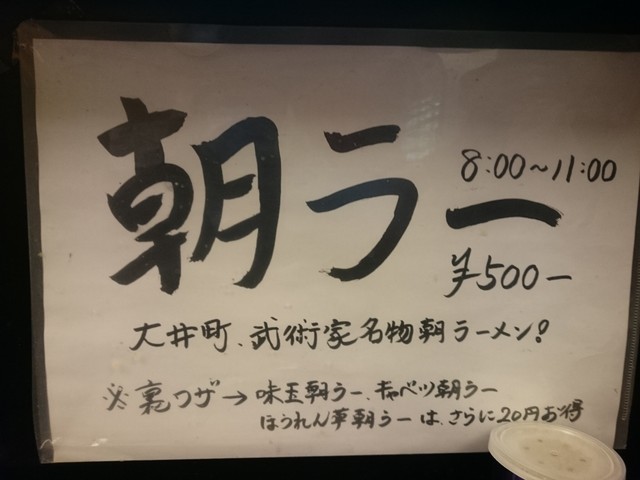 朝ラー
8:00～11:00
¥500ー
大井町、武術家名物朝ラーメン!
※裏ワザ→味玉朝ラー、キャベツ朝ラー
ほうれん草朝ラーは、さらに20円お得